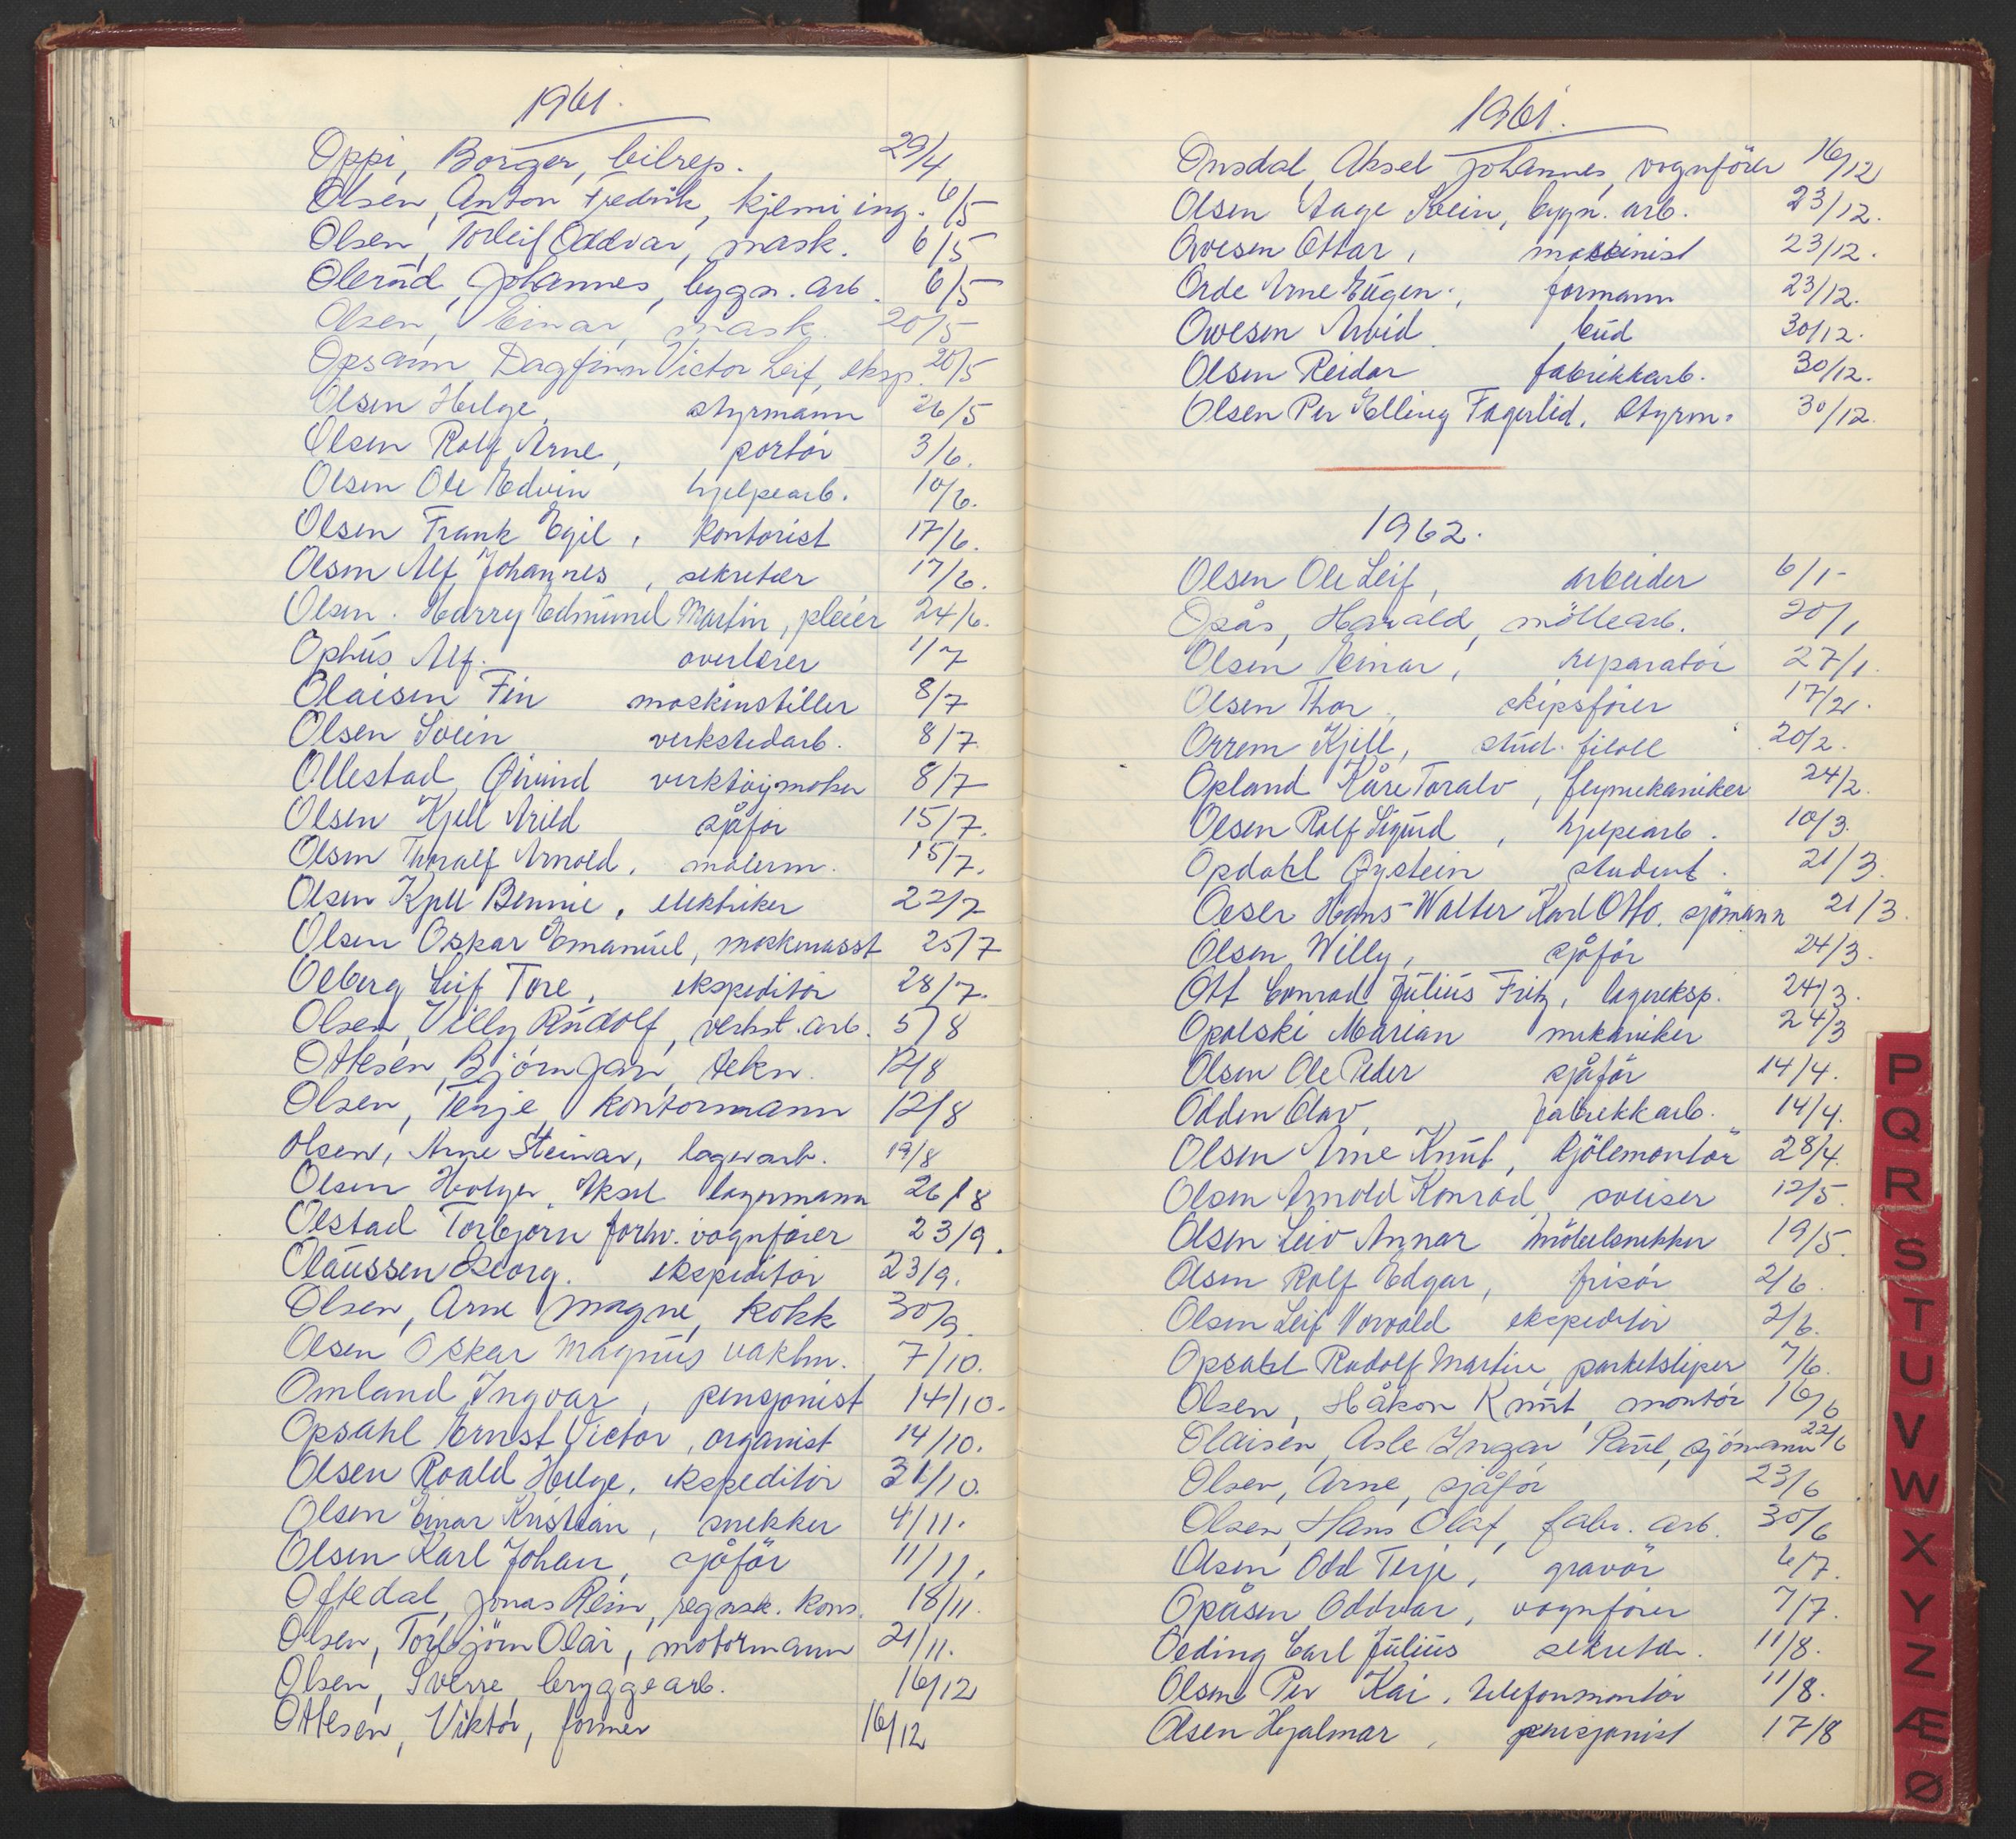 1961.
Oppi, Borger, bilrep. 29/4
Olsen, Anton Fredrik, kjemi ing. 6/5
Olsen, Torleif Oddvar, mask. 6/5
Olerud, Johannes, bygn. arb. 6/5
Olsen, Einar, mask. 20/5
Opsann Dagfinn Victor Leif, eksp. 20/5
Olsen Helge, styrmann 26/5
Olsen Rolf Arne, portör 3/6.
Olsen Ole Edvin hjelpearb. 10/6.
Olsen Frank Egil, kontorist 17/6.
Olsen Alf Johannes, sekretær 17/6.
Olsen. Harry Edmund Martin, pleier 24/6.
Ophus Alf. overlærer 1/7
Olaisen Fin maskinstiller 8/7
Olsen Svein verkstedarb. 8/7.
Ollestad Øivind verktöymaker 8/7
Olsen Kjell Arild sjåför 15/7.
Olsen Thoralf Arnold, malerm. 15/7.
Olsen Kjell Bennie, elektriker 22/7
Olsen Oskar Emanuel, maskmasst 25/7
Oeberg Leif Tore, ekspeditör 28/7.
Olsen, Villy Rudolf, verkst. arb. 5/8
Ottesen, Björn Jan, tekn. 12/8
Olsen, Terje, kontormann 12/8
Olsen, Arne Steinar, lagerarb. 19/8
Olsen Holger Aksel lagermann 26/8
Olstad Torbjörn forhv. vognförer 23/9.
Olaussen Georg. ekspeditör 23/9.
Olsen, Arne Magne, kokk 30/9.
Olsen Oskar Magnus vaktm. 7/10.
Omland Ingvar, pensjonist 14/10.
Opsahl Ernst Victor, organist 14/10.
Olsen Roald Helge, ekspeditör 31/10.
Olsen Einar Kristian, snekker 4/11.
Olsen Karl Johan, sjåför 11/11.
Oftedal, Jonas Rein, regnsk. kons. 18/11.
Olsen, Torbjörn Olai, motormann 21/11.
Olsen, Sverre bryggearb. 16/12
Ottesen, Viktor, former 16/12
1961.
Onsdal, Aksel Johannes, vognförer 16/12
Olsen Aage Svein, bygn. arb. 23/12.
Ovesen Ottar, maskinist 23/12.
Orde Arne Eugen, formann 23/12.
Ovesen Arvid bud 30/12.
Olsen Reidar fabrikkarb. 30/12.
Olsen Per Elling Fagerlid, styrm. 30/12.
1962.
Olsen Ole Leif, arbeider 6/1-
Opås, Harald, möllearb. 20/1
Olsen Einar, reparatör 27/1.
Olsen Thor, skipsförer 17/2.
Orrem Kjell, stud. filoll 20/2.
Opland Kåre Toralv, flymekaniker 24/2.
Olsen Rolf Sigurd, hjelpearb. 10/3.
Opdahl Øystein student. 21/3.
Oeser Hans-Walter Karl Otto. sjömann 21/3.
Olsen Willy, sjåför 24/3.
Ott Conrad Julius Fritz, lagereksp. 24/3.
Opolski Marian mekaniker 24/3
Olsen Ole Peder sjåför 14/4.
Odden Olav, fabrikkarb. 14/4.
Olsen Arne Knut, kjölemontör 28/4.
Olsen Arnold Konrad, sveiser 12/5.
Olsen Leiv Annar möbelsnekker 19/5.
Olsen Rolf Edgar, frisör 2/6.
Olsen Leif Norvald ekspeditör 2/6.
Opsahl Rudolf Martin, parketsliper 7/6.
Olsen, Håkon Knut, montör 16/6
Olaisen, Asle Ingar Paul, sjömann 22/6
Olsen, Arne, sjåför 23/6
Olsen, Hans Olaf, fabr. arb. 30/6
Olsen Odd Terje, gravör 6/7.
Opåsen Oddvar, vognförer 7/7.
Oeding Carl Julius sekretær. 11/8.
Olsen Per Kai, telefonmontör 11/8.
Olsen Hjalmar, pensjonist 17/8
P
Q
R
S
T
U
V
W
X
Y
Z
Æ
Ø